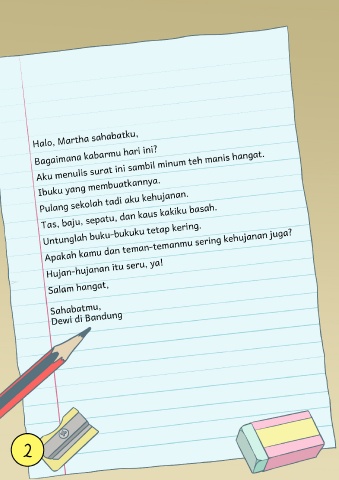 Halo, Martha sahabatku,
Bagaimana kabarmu hari ini?
Aku menulis surat ini sambil minum teh manis hangat.
Ibuku yang membuatkannya.
Pulang sekolah tadi aku kehujanan.
Tas, baju, sepatu, dan kaus kakiku basah.
Untunglah buku-bukuku tetap kering.
Apakah kamu dan teman-temanmu sering kehujanan juga?
Hujan-hujanan itu seru, ya!
Salam hangat,
Sahabatmu,
Dewi di Bandung
2